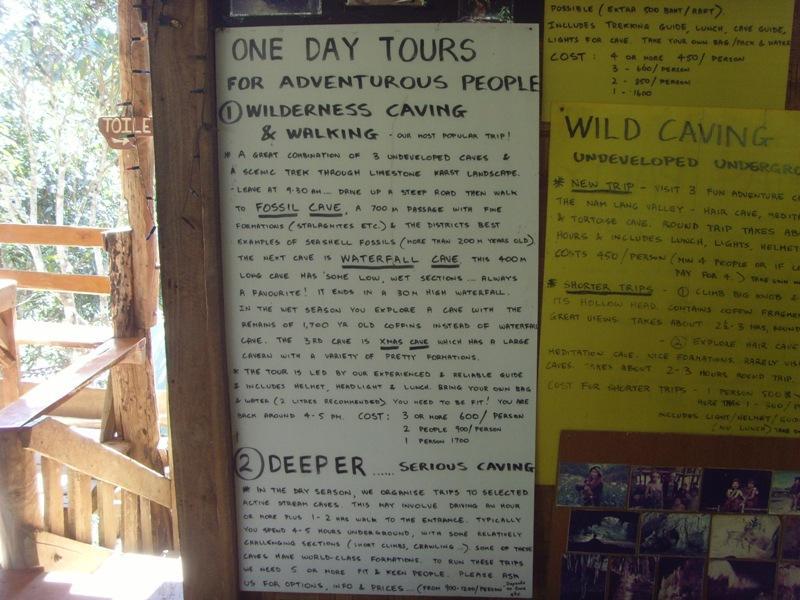 TOILE
ONE DAY TOURS
FOR ADVENTUROUS PEOPLE
① WILDERNESS CAVING
& WALKING - OUR MOST POPULAR TRIP!
* A GREAT COMBINATION OF 3 UNDEVELOPED CAVES &
A SCENIC TREK THROUGH LIMESTONE KARST LANDSCAPE.
- LEAVE AT 9.30 AM... DRIVE UP A STEEP ROAD THEN WALK
TO FOSSIL CAVE, A 700 M PASSAGE WITH FINE
FORMATIONS (STALAGNITES ETC.) & THE DISTRICTS BEST
EXAMPLES OF SEASHELL FOSSILS (MORE THAN 200 M YEARS OLD).
THE NEXT CAVE IS WATERFALL CAVE. THIS 400M
LONG CAVE HAS SOME LOW, WET SECTIONS.... ALWAYS
A FAVOURITE! IT ENDS IN A 30M HIGH WATERFALL.
IN THE WET SEASON YOU EXPLORE A CAVE WITH THE
REMAINS OF 1,700 YR OLD COFFINS INSTEAD OF WATERFALL
CAVE. THE 3RD CAVE IS XMAS CAVE WHICH HAS A LARGE
CAVERN WITH A VARIETY OF PRETTY FORMATIONS.
* THE TOUR IS LED BY OUR EXPERIENCED & RELIABLE GUIDE
& INCLUDES HELMET, HEADLIGHT & LUNCH. BRING YOUR OWN BAG
& WATER (2 LITRES RECOMMENDED) YOU NEED TO BE FIT! YOU ARE
BACK AROUND 4-5 PM. COST: 3 OR MORE 600/PERSON
2 PEOPLE 900/PERSON
1 PERSON 1700
② DEEPER ...... SERIOUS CAVING
* IN THE DRY SEASON, WE ORGANISE TRIPS TO SELECTED
ACTIVE STREAM CAVES. THIS MAY INVOLVE DRIVING AN HOUR
OR MORE PLUS 1-2 HRS WALK TO THE ENTRANCE. TYPICALLY
YOU SPEND 4-5 HOURS UNDERGROUND, WITH SOME RELATIVELY
CHALLENGING SECTIONS (SHORT CLIMBS, CRAWLING...) SOME OF THESE
CAVES HAVE WORLD-CLASS FORMATIONS. TO RUN THESE TRIPS
WE NEED 5 OR MORE FIT & KEEN PEOPLE. PLEASE ASK
US FOR OPTIONS, INFO & PRICES... (FROM 900-1200/PERSON
POSSIBLE (EXTRA 500 BAHT/RAFT).
INCLUDES TREKKING GUIDE, LUNCH, CAVE GUIDE,
LIGHTS FOR CAVE. TAKE YOUR OWN BAG/PACK & WATER
COST: 4 OR MORE 450/PERSON
3 - 600/PERSON
2 - 850/PERSON
1 - 1600
WILD CAVING
UNDEVELOPED UNDERGRO
* NEW TRIP - VISIT 3 FUN ADVENTURE C
THE NAM LANG VALLEY - HAIR CAVE, MEDIT
& TORTOISE CAVE. ROUND TRIP TAKES AB
HOURS & INCLUDES LUNCH, LIGHTS, HELMET
COSTS 450/PERSON (MIN 4 PEOPLE OR IF L
PAY FOR 4.) TAKE OWN
* SHORTER TRIPS - ① CLIMB BIG KNOB &
ITS HOLLOW HEAD. CONTAINS COFFIN FRAGME
GREAT VIEWS. TAKES ABOUT 2½-3 HRS, ROUND
- ② EXPLORE HAIR CAVE
MEDITATION CAVE. NICE FORMATIONS. RARELY VIS
CAVES. TAKES ABOUT 2-3 HOURS ROUND TRIP.
COST FOR SHORTER TRIPS - 1 PERSON 500
MORE THAN 1 - 300/P
INCLUDES LIGHT/HELMET/GUID
(NO LUNCH) TAKE